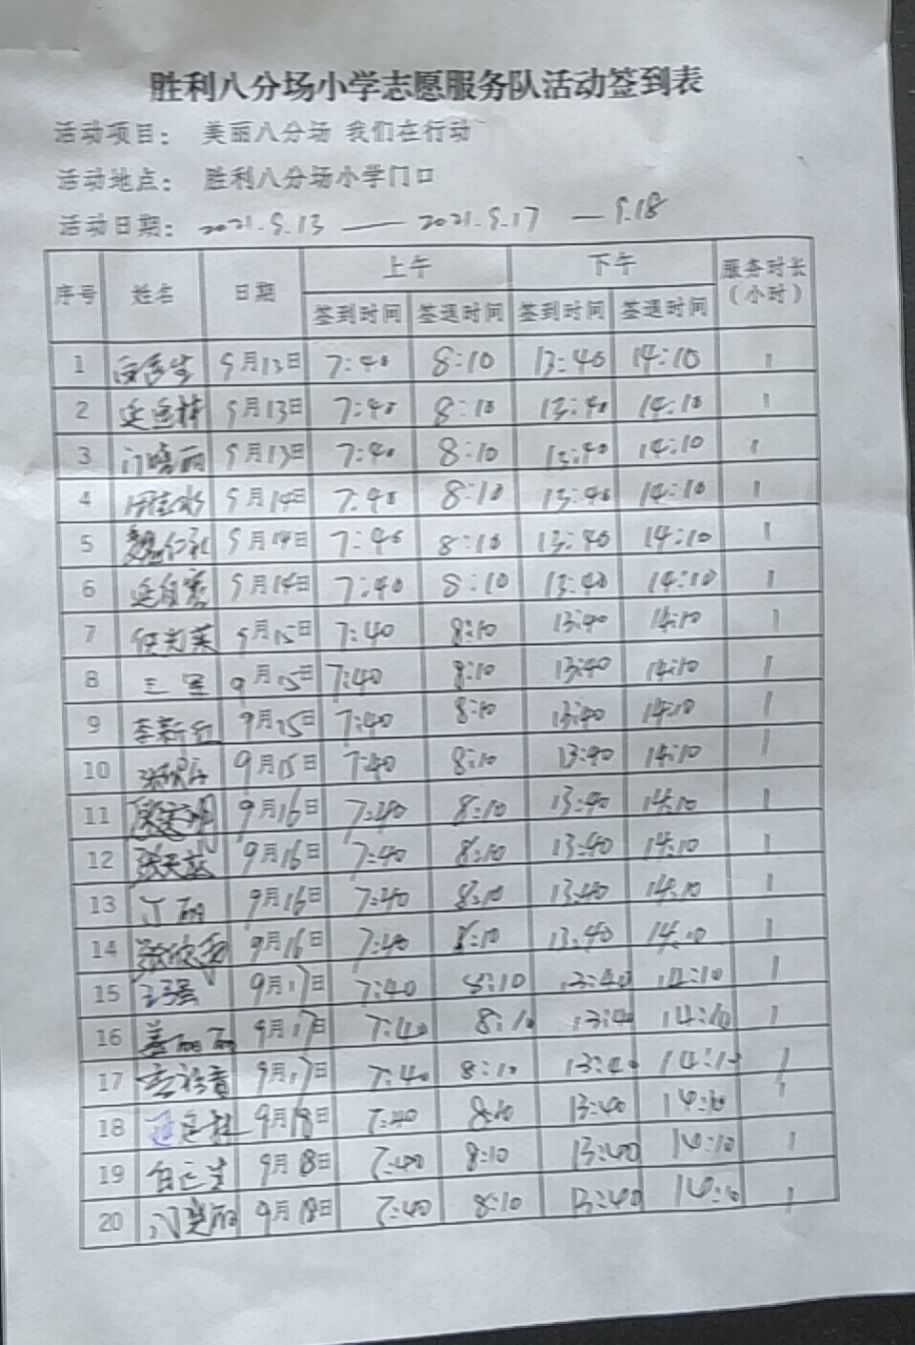 胜利八分场小学志愿服务队活动签到表
活动项目: 美丽八分场 我们在行动
活动地点: 胜利八分场小学门口
活动日期: 2021.9.13 — 2021.9.17 — 9.18
序号 姓名 日期 上午 下午 服务时长(小时)
签到时间 签退时间 签到时间 签退时间
1 9月13日 7:40 8:10 13:40 14:10 1
2 9月13日 7:40 8:10 13:40 14:10 1
3 9月13日 7:40 8:10 13:40 14:10 1
4 9月14日 7:40 8:10 13:40 14:10 1
5 9月14日 7:40 8:10 13:40 14:10 1
6 9月14日 7:40 8:10 13:40 14:10 1
7 9月15日 7:40 8:10 13:40 14:10 1
8 9月15日 7:40 8:10 13:40 14:10 1
9 李新 9月15日 7:40 8:10 13:40 14:10 1
10 9月15日 7:40 8:10 13:40 14:10 1
11 9月16日 7:40 8:10 13:40 14:10 1
12 9月16日 7:40 8:10 13:40 14:10 1
13 丁丽 9月16日 7:40 8:10 13:40 14:10 1
14 9月16日 7:40 8:10 13:40 14:10 1
15 王强 9月17日 7:40 8:10 13:40 14:10 1
16 姜丽丽 9月17日 7:40 8:10 13:40 14:10 1
17 9月17日 7:40 8:10 13:40 14:10 1
18 9月18日 7:40 8:10 13:40 14:10 1
19 9月18日 7:40 8:10 13:40 14:10 1
20 9月18日 7:40 8:10 13:40 14:10 1